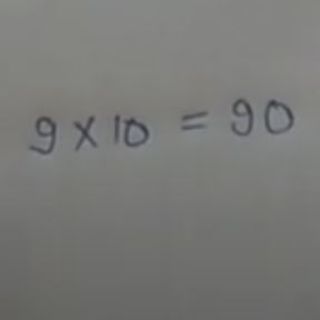 9 × 10 = 90